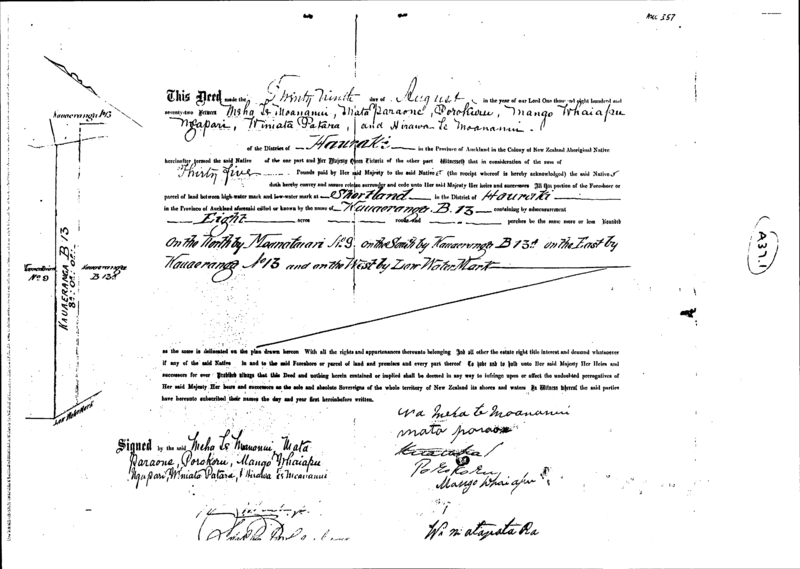 AUC 357
A37.1
This Deed made the Twenty ninth day of August in the year of our Lord One thousand eight hundred and
seventy-two Between Meha Te Moananui, Mata Paraone, Porokoru, Mango Whaiapu
Ngapari, Winiata Patara, and Hirawa Te Moananui.
of the District of Hauraki in the Province of Auckland in the Colony of New Zealand Aboriginal Native
hereinafter termed the said Native of the one part and Her Majesty Queen Victoria of the other part Witnesseth that in consideration of the sum of
Thirty five Pounds paid by Her said Majesty to the said Natives (the receipt whereof is hereby acknowledged) the said Natives
doth hereby convey and assure release surrender and cede unto Her said Majesty Her heirs and successors All that portion of the Foreshore or
parcel of land between high-water mark and low-water mark at Shortland in the District of Hauraki
in the Province of Auckland aforesaid called or known by the name of Kauaeranga B. 13 containing by admeasurement
Eight acres roods and perches be the same more or less Bounded
On the North by No 9. on the South by Kauaeranga B 13a on the East by
Kauaeranga No 13 and on the West by Low Water Mark
as the same is delineated on the plan drawn hereon With all the rights and appurtenances thereunto belonging And all other the estate right title interest and demand whatsoever
if any of the said Native in and to the said Foreshore or parcel of land and premises and every part thereof To hold unto Her said Majesty Her Heirs and
successors for ever Provided always that this Deed and nothing herein contained or implied shall be deemed in any way to infringe upon or affect the undoubted prerogatives of
Her said Majesty Her heirs and successors as the sole and absolute Sovereigns of the whole territory of New Zealand its shores and waters In Witness whereof the said parties
have hereunto subscribed their names the day and year first hereinbefore written.
Kauaeranga No 13
No 9
KAUAERANGA B 13
8a. 0r. 0p.
Kauaeranga
B 13a
Low Water Mark
Signed by the said Meha Te Moananui, Mata
Paraone, Porokoru, Mango Whaiapu
Ngapari, Winiata Patara, & Hirawa Te Moananui
na Meha te Moananui
mata paraone
Porokoru
Mango Whaiapu
Wi ni ata pata Ra